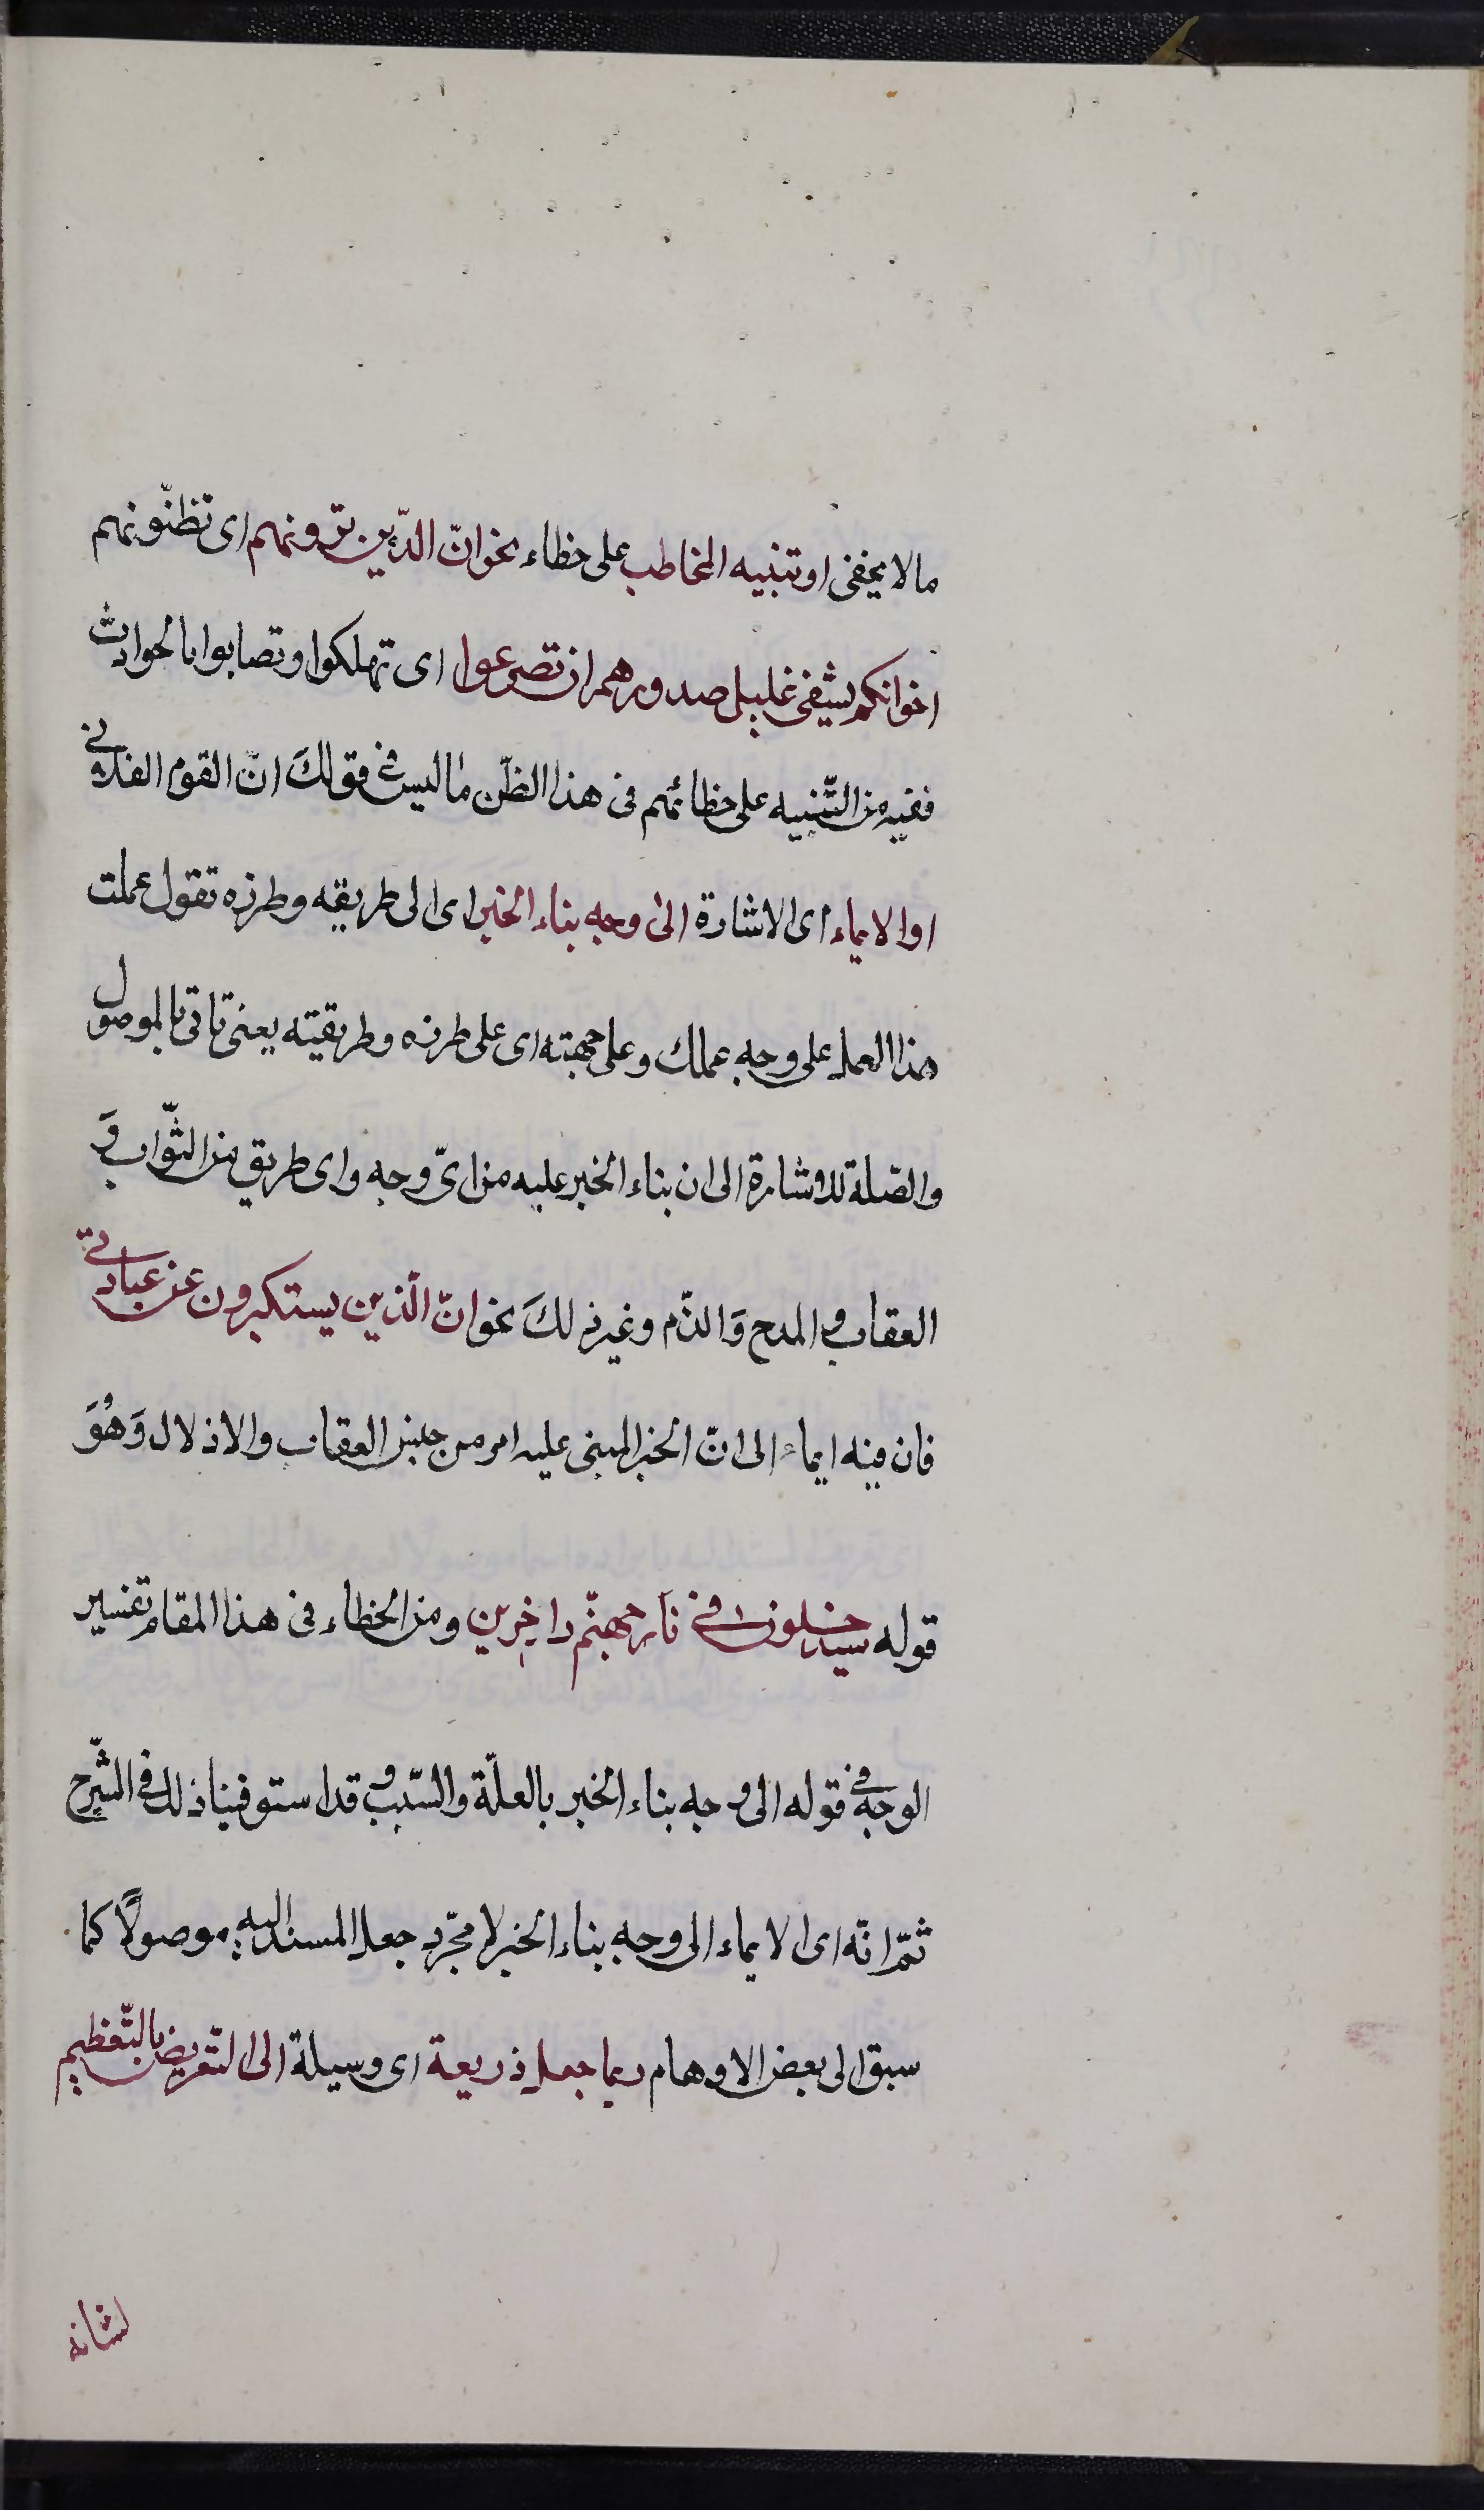 ما لا يخفى او تنبيه المخاطب على خطاء نحو انّ الذّين ترونهم اى تظنّونهم
اخوانكم يشفى غليل صدورهم ان تصرعوا اى تهلكوا وتصابوا بالحوادث
ففيه من التّنبيه على خطائهم فى هذا الظّن ما ليس فى قولكَ انّ القوم الفلانى
او الايماء اى الاشارة الى وجه بناء الخبر اى الى طريقه وطرزه تقول عملت
هذا العمل على وجه عملك وعلى جهته اى على طرزه وطريقيته يعنى تاتى بالموصول
والصّلة للاشارة الى ان بناء الخبر عليه من اىّ وجه واى طريق من الثّواب وَ
العقاب والمدح وَالذّم وغير ذلكَ نحو انّ الّذين يستكبرون عن عبادتى
فان فيه ايماء الى انّ الخبر المبنى عليه امر من جنس العقاب والاذلال وَهُوَ
قوله سيدخلون فى نار جهنّم داخِرين ومن الخطاء فى هذا المقام تفسير
الوجه فى قوله الى وجه بناء الخبر بالعلّة والسّبب و قد استوفينا ذلك فى الشّرح
ثمّ انّه اى الايماء الى وجه بناء الخبر لا مجّرد جعل المسند اليه موصولًا كما
سبق الى بعض الاوهام ربما جعل ذريعة اى وسيلة الى التّعريض بالتّعظيم
لشانه